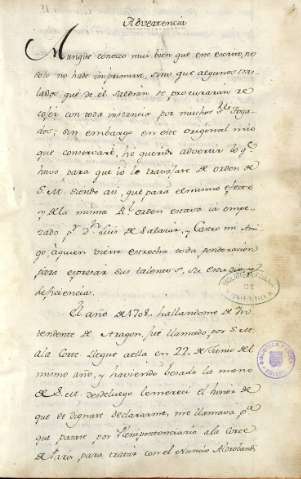 Advertencia
Aunque conozco mui bien que este escrito, no
solo no hade imprimirse, sino que algunos tras
lados que de el saldràn se procuraràn re
cojer con toda instancia por muchos
dos; sin embargo en este original mio
que conservaré, hé querido advertir lo q.
huvo para que io lo travajase de orden de
S. M. siendo asi, que para el mismo efecto
y de la misma R.l orden estava ia empe
zado p.r D.n Luis de Salazar, y Castro mi Ami
go àquien viene estrecha toda ponderaciòn
para expresar sus talentos, su erudiciòn y
suficiencia.
El año de 1708. hallandome de In
tendente de Aragon, fuí llamado, por S. M.
ala Corte llegue aella en 22. de Junio del
mismo año, y haviendo besado la mano
de S. M. desde luego lemerecí el honor de
que se dignase declararme, me llamava p.a
que pasase por Plenipotenciario ala Corte
de Paris para tratar con el Nuncio Aldobandi